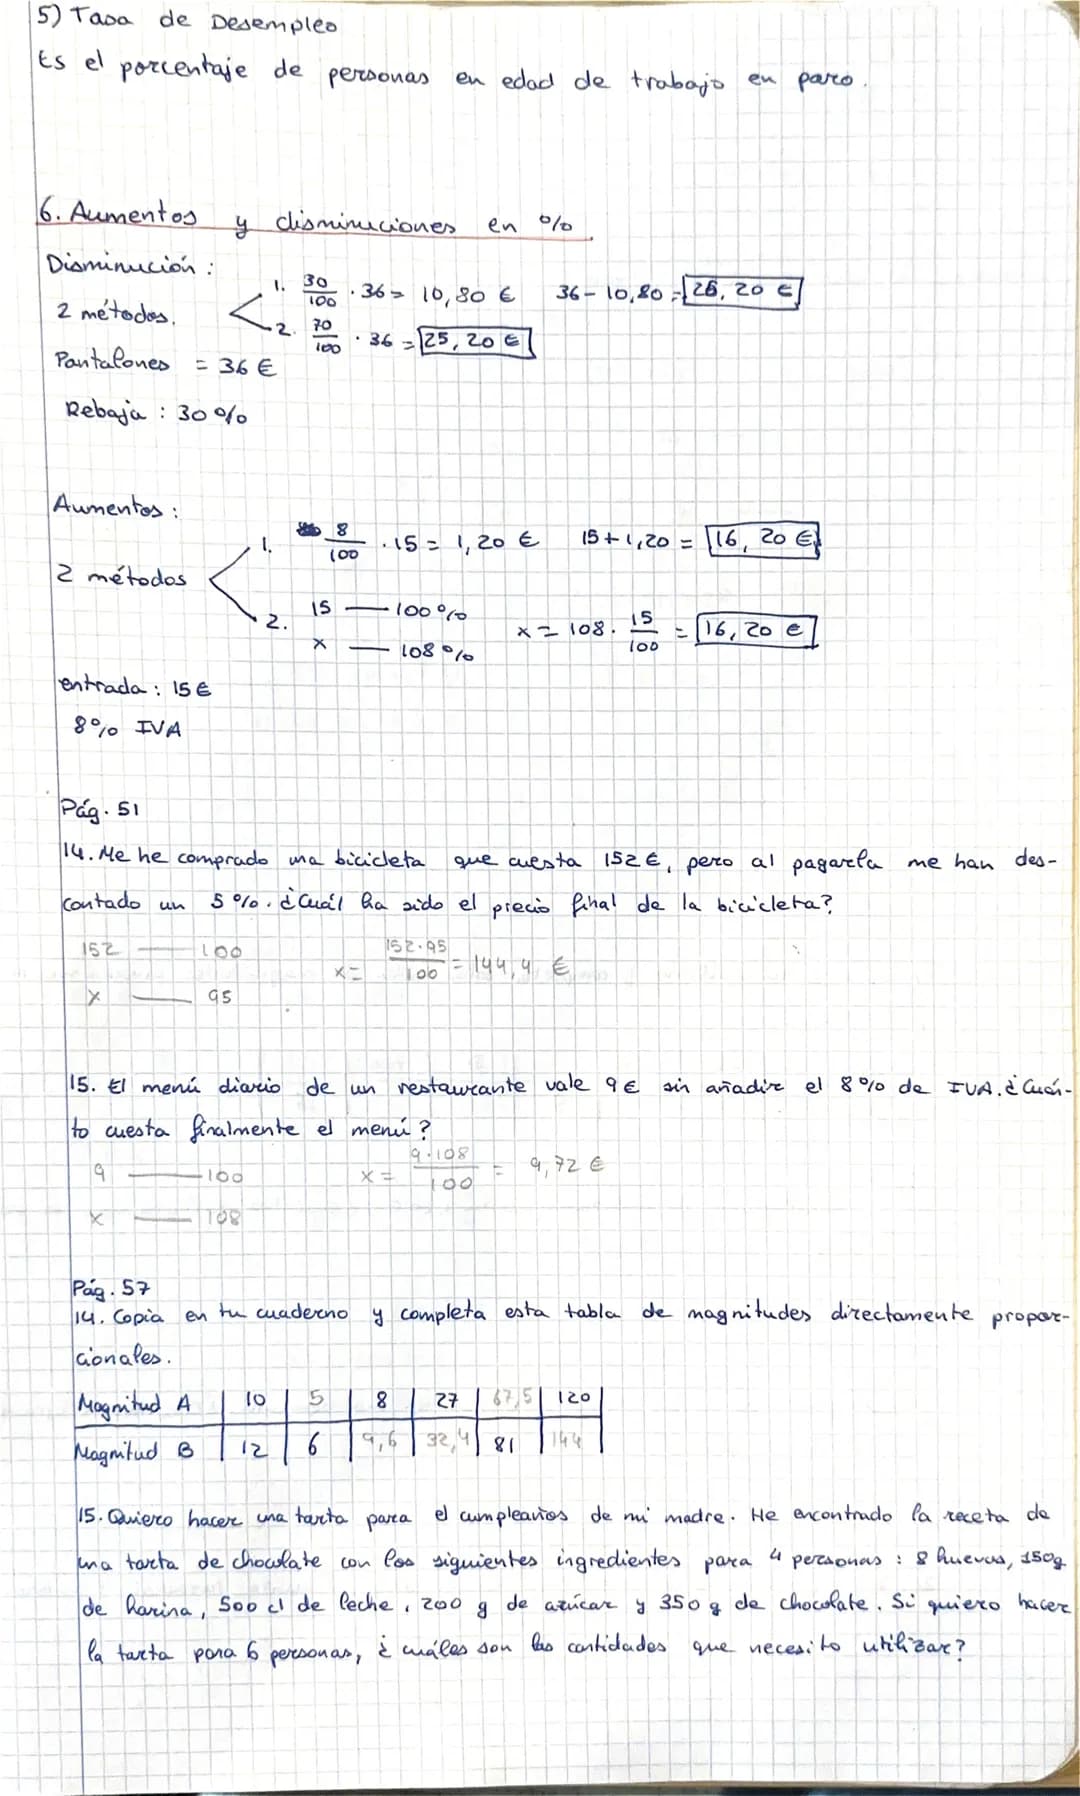 5) Tasa de Desempleo
Es el porcentaje de personas en edad de trabajo en paro.
6. Aumentos y disminuciones en %
Disminución:
1. 30/100 · 36 = 10,80 € 36 - 10,80 = 25, 20 €
2 métodos.
2. 70/100 · 36 = 25, 20 €
Pantalones = 36 €
Rebaja : 30 %
Aumentos :
1. 8/100 · 15 = 1,20 € 15 + 1,20 = 16, 20 €
2 métodos
2. 15 — 100 %
x — 108 % x = 108 · 15/100 = 16, 20 €
entrada : 15 €
8% IVA
Pág. 51
14. Me he comprado una bicicleta que cuesta 152 €, pero al pagarla me han des-
contado un 5 %. ¿Cuál ha sido el precio final de la bicicleta?
152 — 100 x = 152·95/100 = 144,4 €
x — 95
15. El menú diario de un restaurante vale 9 € sin añadir el 8 % de IVA. ¿Cuán-
to cuesta finalmente el menú?
9 — 100 x = 9·108/100 = 9,72 €
x — 108
Pág. 57
14. Copia en tu cuaderno y completa esta tabla de magnitudes directamente propor-
cionales.
Magnitud A | 10 | 5 | 8 | 27 | 67,5 | 120
Magnitud B | 12 | 6 | 9,6 | 32,4 | 81 | 144
15. Quiero hacer una tarta para el cumpleaños de mi madre. He encontrado la receta de
una tarta de chocolate con los siguientes ingredientes para 4 personas : 8 huevos, 150g
de harina, 500 cl de leche, 200 g de azúcar y 350 g de chocolate. Si quiero hacer
la tarta para 6 personas, ¿ cuáles son las cantidades que necesito utilizar?